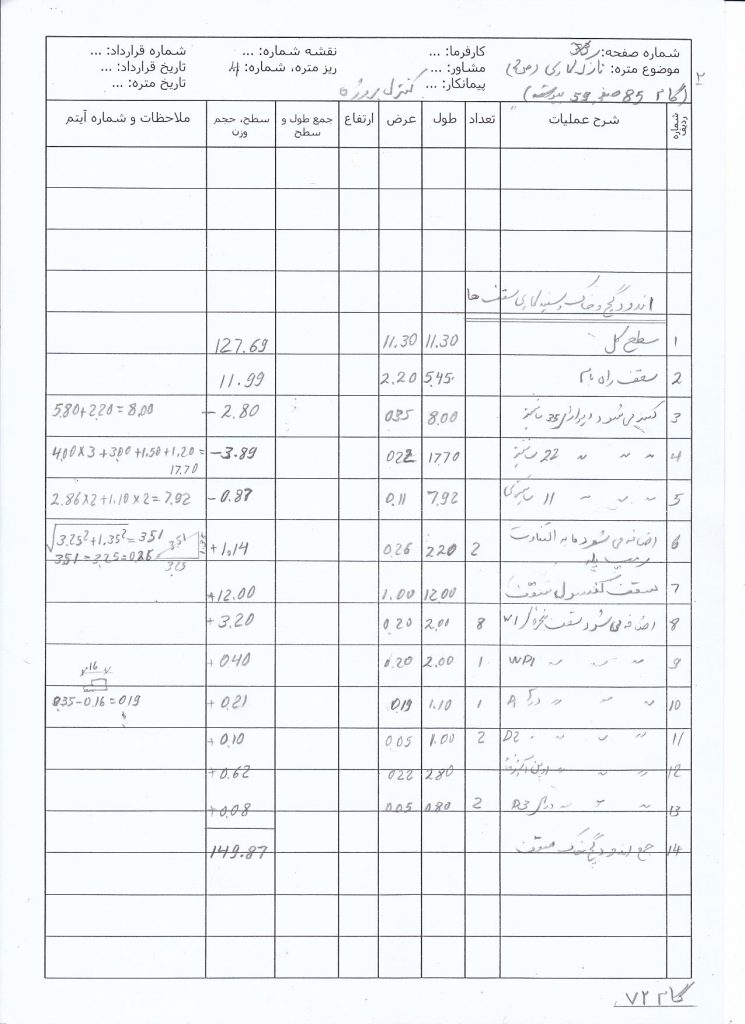 شماره صفحه: 35 کارفرما: ... نقشه شماره: ... شماره قرارداد: ...
موضوع متره: نازک کاری مشاور: ... ریز متره، شماره: 4 تاریخ قرارداد: ...
(گام 85 صفحه 59) پیمانکار: ... کنترل پروژه تاریخ متره: ...
۲
شماره ردیف شرح عملیات تعداد طول عرض ارتفاع جمع طول و سطح سطح، حجم وزن ملاحظات و شماره آیتم
اندود گچ و خاک و سفید کاری سقف ها
1 سطح کل 11.30 11.30 127.69
2 سقف راه پله 5.45 2.20 11.99
3 کسر می شود دیوارهای 35 سانتی 8.00 0.35 - 2.80 5.80+2.20=8.00
4 " " " 22 سانتی 17.70 0.22 - 3.89 4.00×3+3.00+1.50+1.20=
17.70
5 " " " 11 سانتی 7.92 0.11 - 0.87 2.86×2+1.10×2=7.92
6 اضافه می شود مابه التفاوت 2 2.20 0.26 + 1.14 √3.25²+1.35² = 3.51
شیب پله 3.51 - 3.25 = 0.26 3.51 1.35 3.25
7 سقف کنسول سقف 12.00 1.00 +12.00
8 اضافه می شود سقف پنجره W1 8 2.00 0.20 + 3.20
9 " " " WP1 1 2.00 0.20 + 0.40
.16
10 " " " در A 1 1.10 0.19 + 0.21 0.35-0.16=0.19
11 " " " D2 2 1.00 0.05 + 0.10
12 " " " اوپن آشپزخانه 2.80 0.22 + 0.62
13 " " " در D3 2 0.80 0.05 + 0.08
14 جمع اندود گچ و خاک سقف 149.87
گام ۷۲